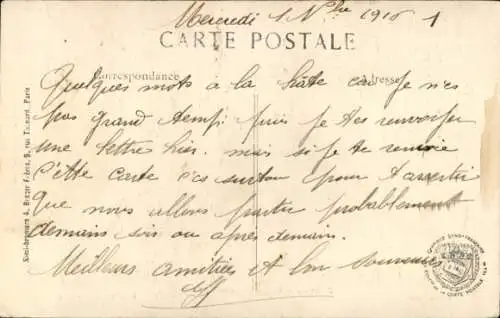 Mercredi 1 Nbre 1916 1
CARTE POSTALE
Correspondance Adresse
Quelques mots a la hâte car je n'es
pas grand temps puis je t'es renvoyer
une lettre hier. mais si je te renvoie
c'ette carte c'es surtout pour t'avertir
que nous allons partir probablement
demain soir ou apres demain.
Meilleurs amitiées et bon souvenir
Simi-bromure A. Breger Frères, 9, rue Thénard, Paris